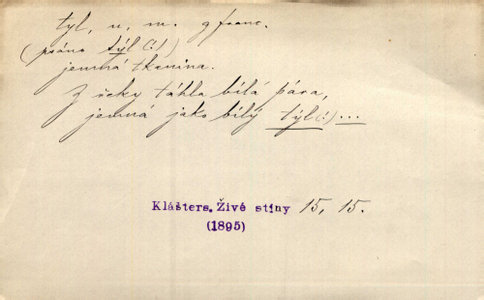 tyl, u, m. z franc.
(psáno týl (!))
jemná tkanina.
Z řeky táhla bílá pára,
jemná jako bílý týl (!) ...
Klášters. Živé stíny 15, 15.
(1895)